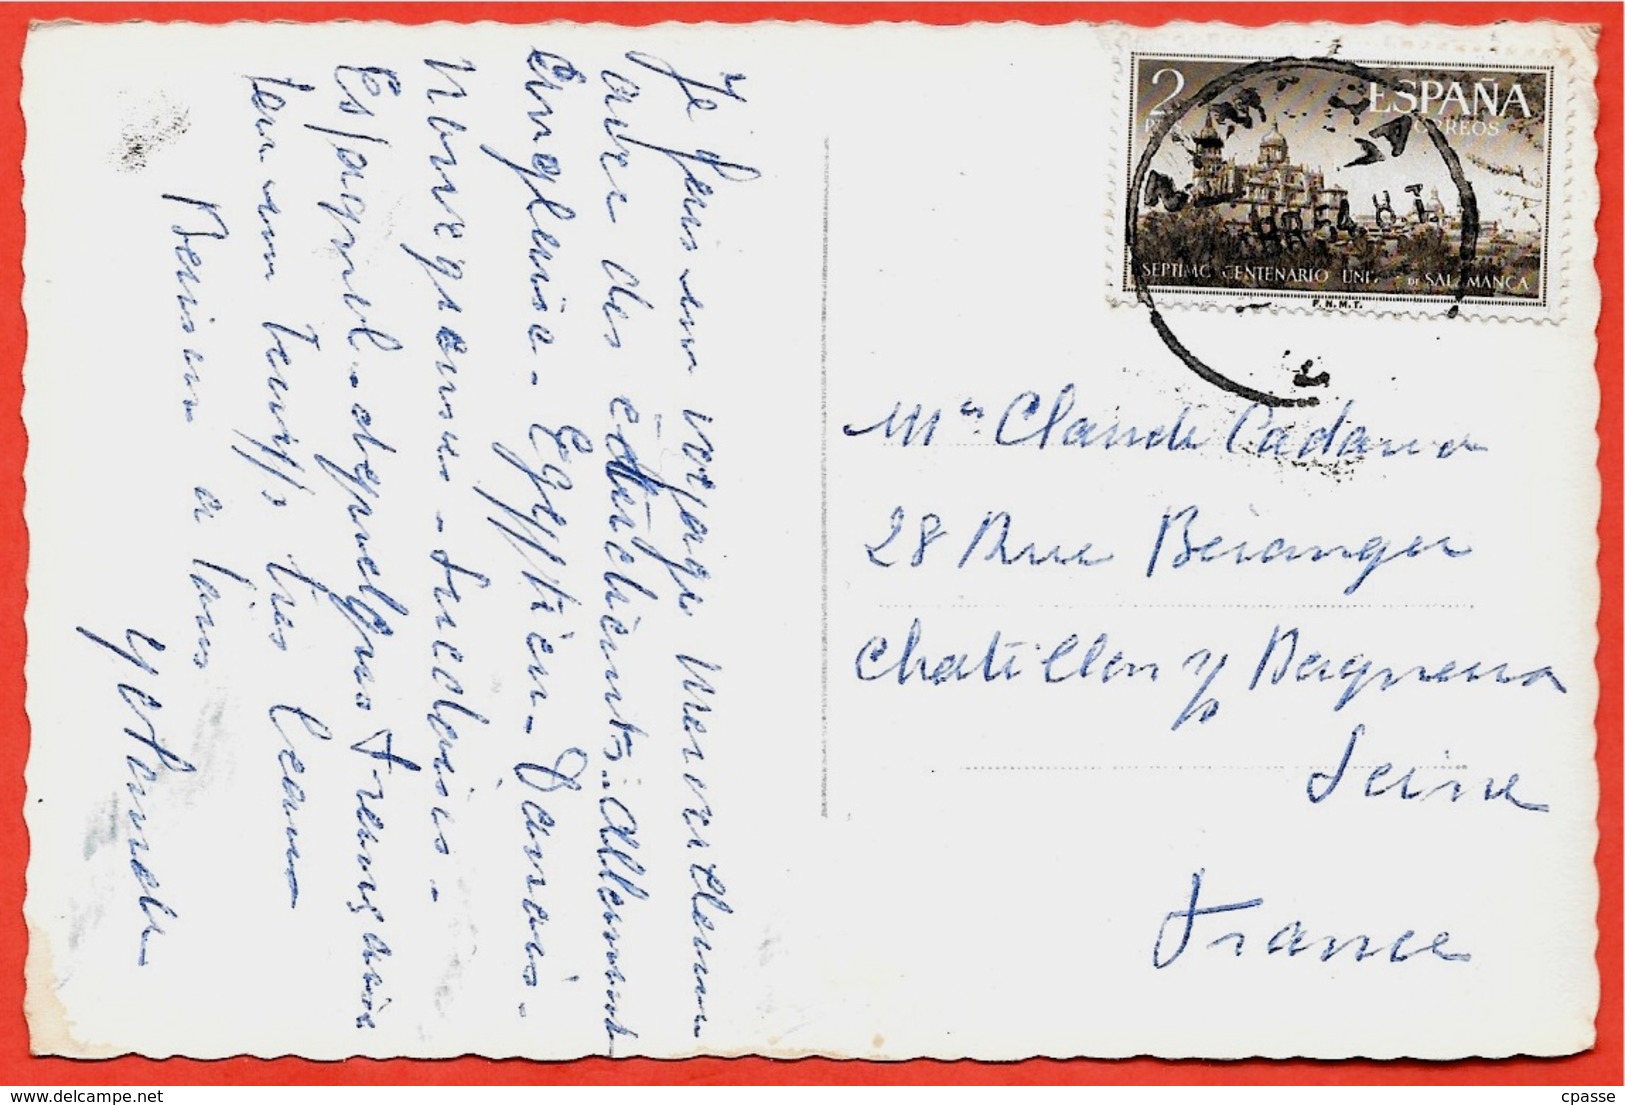 Je fais un voyage merveilleux
avec des étudiants. Allemand
Anglaise - Egyptien - Danois -
Norvegienne - Suedois -
Espagnol - et quelques Français
Temps tres beau
Baisers a tous
Yolande
2
PTS
ESPAÑA
CORREOS
SEPTIMO CENTENARIO UNIV. DE SALAMANCA
F.N.M.T.
Mr Claude Cadars
28 Rue Béranger
Chatillon s/ Bagneux
Seine
France
cpasse